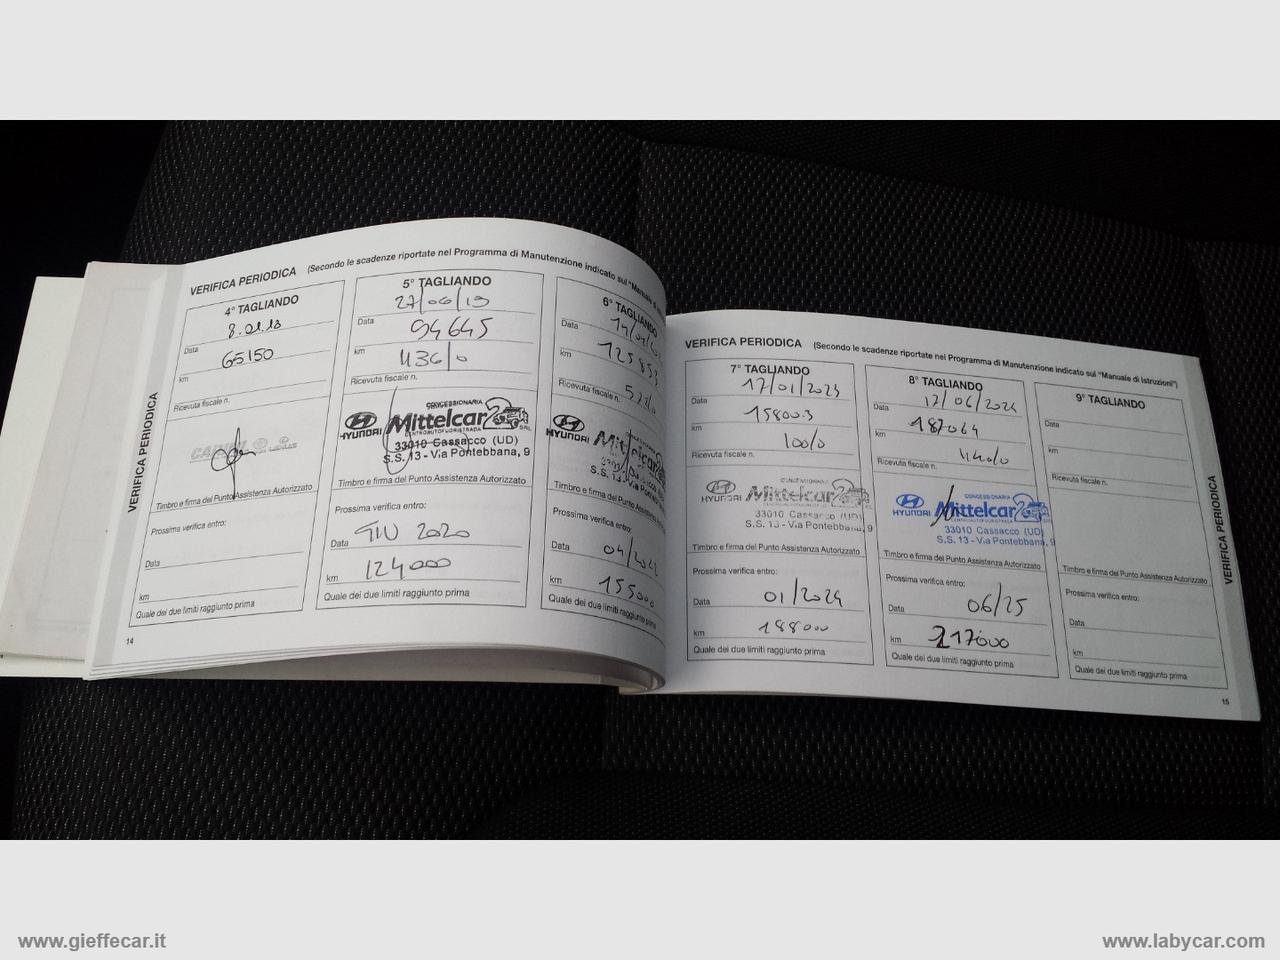 VERIFICA PERIODICA (Secondo le scadenze riportate nel Programma di Manutenzione indicato sul "Manuale di
4° TAGLIANDO
8.01.18
Data
65150
km
Ricevuta fiscale n.
Timbro e firma del Punto Assistenza Autorizzato
Prossima verifica entro:
Data
km
Quale dei due limiti raggiunto prima
14
VERIFICA PERIODICA
5° TAGLIANDO
27/06/19
Data
94645
km
436/0
Ricevuta fiscale n.
CONCESSIONARIA
HYUNDAI Mittelcar 2 SRL
CENTROAUTOFUORISTRADA
33010 Cassacco (UD)
S.S. 13 - Via Pontebbana, 9
Timbro e firma del Punto Assistenza Autorizzato
Prossima verifica entro:
Data GIU 2020
km 124000
Quale dei due limiti raggiunto prima
6° TAGLIANDO
Data
km
Ricevuta fiscale n.
HYUNDAI Mittelcar
S.S. 13 - Via Pontebbana
Timbro e firma del Punto Assistenza
Prossima verifica entro:
Data
km 155000
Quale dei due limiti raggiunto prima
VERIFICA PERIODICA (Secondo le scadenze riportate nel Programma di Manutenzione indicato sul "Manuale di Istruzioni")
7° TAGLIANDO
17/01/2023
Data
158003
km
100/0
Ricevuta fiscale n.
CONCESSIONARIA
HYUNDAI Mittelcar 2
33010 Cassacco (UD)
S.S. 13 - Via Pontebbana, 9
Timbro e firma del Punto Assistenza Autorizzato
Prossima verifica entro:
Data 01/2024
km 188000
Quale dei due limiti raggiunto prima
8° TAGLIANDO
17/06/2024
Data
187064
km
Ricevuta fiscale n.
CONCESSIONARIA
HYUNDAI Mittelcar 2 SRL
CENTROAUTOFUORISTRADA
33010 Cassacco (UD)
S.S. 13 - Via Pontebbana, 9
Timbro e firma del Punto Assistenza Autorizzato
Prossima verifica entro:
Data 06/25
km 217000
Quale dei due limiti raggiunto prima
9° TAGLIANDO
Data
km
Ricevuta fiscale n.
Timbro e firma del Punto Assistenza Autorizzato
Prossima verifica entro:
Data
km
Quale dei due limiti raggiunto prima
15
VERIFICA PERIODICA
www.gieffecar.it
www.labycar.com